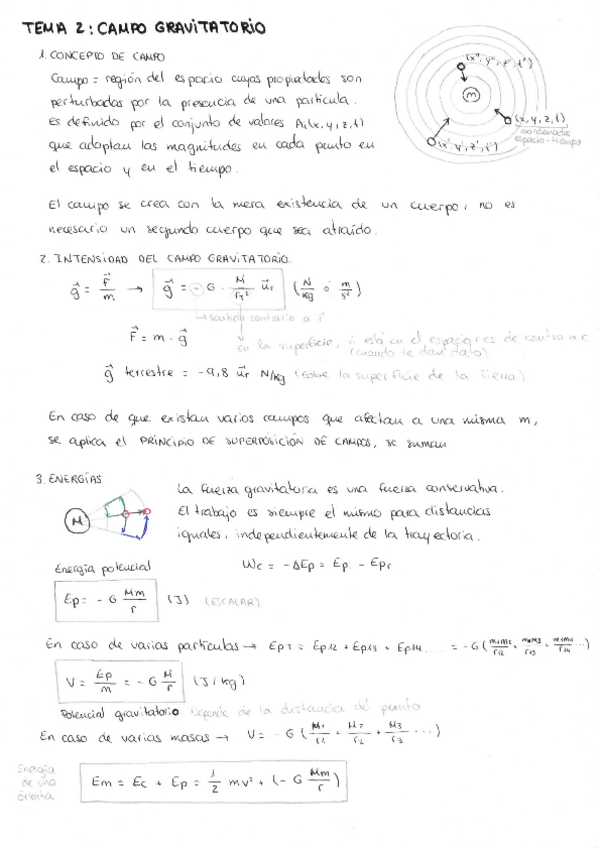 TEMA 2: CAMPO GRAVITATORIO
1. CONCEPTO DE CAMPO
Campo = región del espacio cuyas propiedades son
perturbadas por la presencia de una partícula.
es definido por el conjunto de valores A(x, y, z, t)
que adoptan las magnitudes en cada punto en
el espacio y en el tiempo.
(x'', y'', z'', t'')
m
(x, y, z, t)
coordenadas
espacio-tiempo
(x', y', z', t')
El campo se crea con la mera existencia de un cuerpo, no es
necesario un segundo cuerpo que sea atraído.
2. INTENSIDAD DEL CAMPO GRAVITATORIO.
g⃗ = F⃗/m → g⃗ = - G · M/r² u⃗r (N/kg ó m/s²)
sentido contrario a r⃗
F⃗ = m · g⃗
en la superficie, está en el espacio, r es de centro a c
(cuando te dan dato)
g⃗ terrestre = -9,8 u⃗r N/kg (sobre la superficie de la Tierra)
En caso de que existan varios campos que afectan a una misma m,
se aplica el PRINCIPIO DE SUPERPOSICIÓN DE CAMPOS, se suman
3. ENERGÍAS
M
La fuerza gravitatoria es una fuerza conservativa.
El trabajo es siempre el mismo para distancias
iguales, independientemente de la trayectoria.
Energía potencial
Wc = -ΔEp = Ep - Epf
Ep = - G Mm/r (J) (ESCALAR)
En caso de varias partículas → EpT = Ep12 + Ep13 + Ep14 ... = - G (m1m2/r12 + m1m3/r13 + ...)
V = Ep/m = - G M/r (J/kg)
Potencial gravitatorio depende de la distancia del punto
En caso de varias masas → V = - G (M1/r1 + M2/r2 + M3/r3 ...)
Energía
de una
órbita
Em = Ec + Ep = 1/2 mv² + (- G Mm/r)